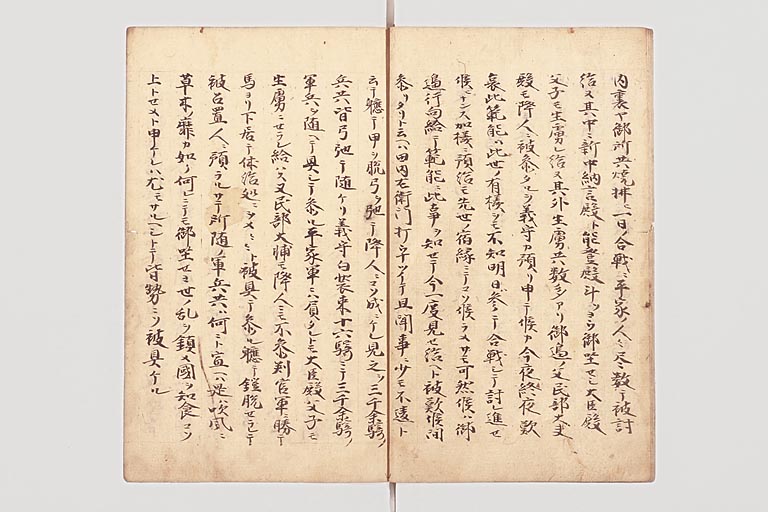 内裏ヤ御所共焼拂一日ノ合戰ニ平家ノ人々尽数テ被討
給ヌ其中ニ新中納言殿ト能登殿斗ソヨク御坐セシ大臣殿
父子モ生虜レ給ヌ其外生虜共数多アリ御邊ノ父民部大夫
殿モ降人ニ被参タルヲ義守カ預リ申テ候カ今夜終夜歎
哀此範能カ此世ノ有樣ヲモ不知明日参テ合戰シテ討レ進セ
候ハンスル加樣ニ預給モ先世ノ宿縁ニテコソ候ラメサモ可然候ハ御
邊行向給テ範能ニ此事ヲ知セテ今一度見セ給ヘト被歎候間
参リタリト云ヘハ田内左衛門打ウナツイテ且聞事ニ少モ不違ト
云テ軈テ甲ヲ脱弓ヲ弛テ降人ニコソ成ニケレ見之ヲ三千余騎ノ
兵共皆弓弛テ随ケリ義守白装束十六騎ニテ三千余騎ノ
軍兵ヲ随ヘテ具シテ参ル平家軍ニハ負タレトモ大臣殿父子モ
生虜ニセラレ給ハス又民部大輔モ降人ニモ不参判官軍ニ勝テ
馬ヨリ下居テ休給処ニヲメ〳〵ト被具テ参ル軈テ鎧脱セラレテ
被召置人ニ預ラルサテ所随ノ軍兵共ハ何ニト宣ヘハ是ハ吹風ニ
草木ノ靡カ如ノ何レニテモ御坐セヨ世ノ乱ヲ鎮メ國ヲ知食ヲコソ
上トセメト申ケレハ尤モサルヘシトテ皆勢ニソ被具ケル